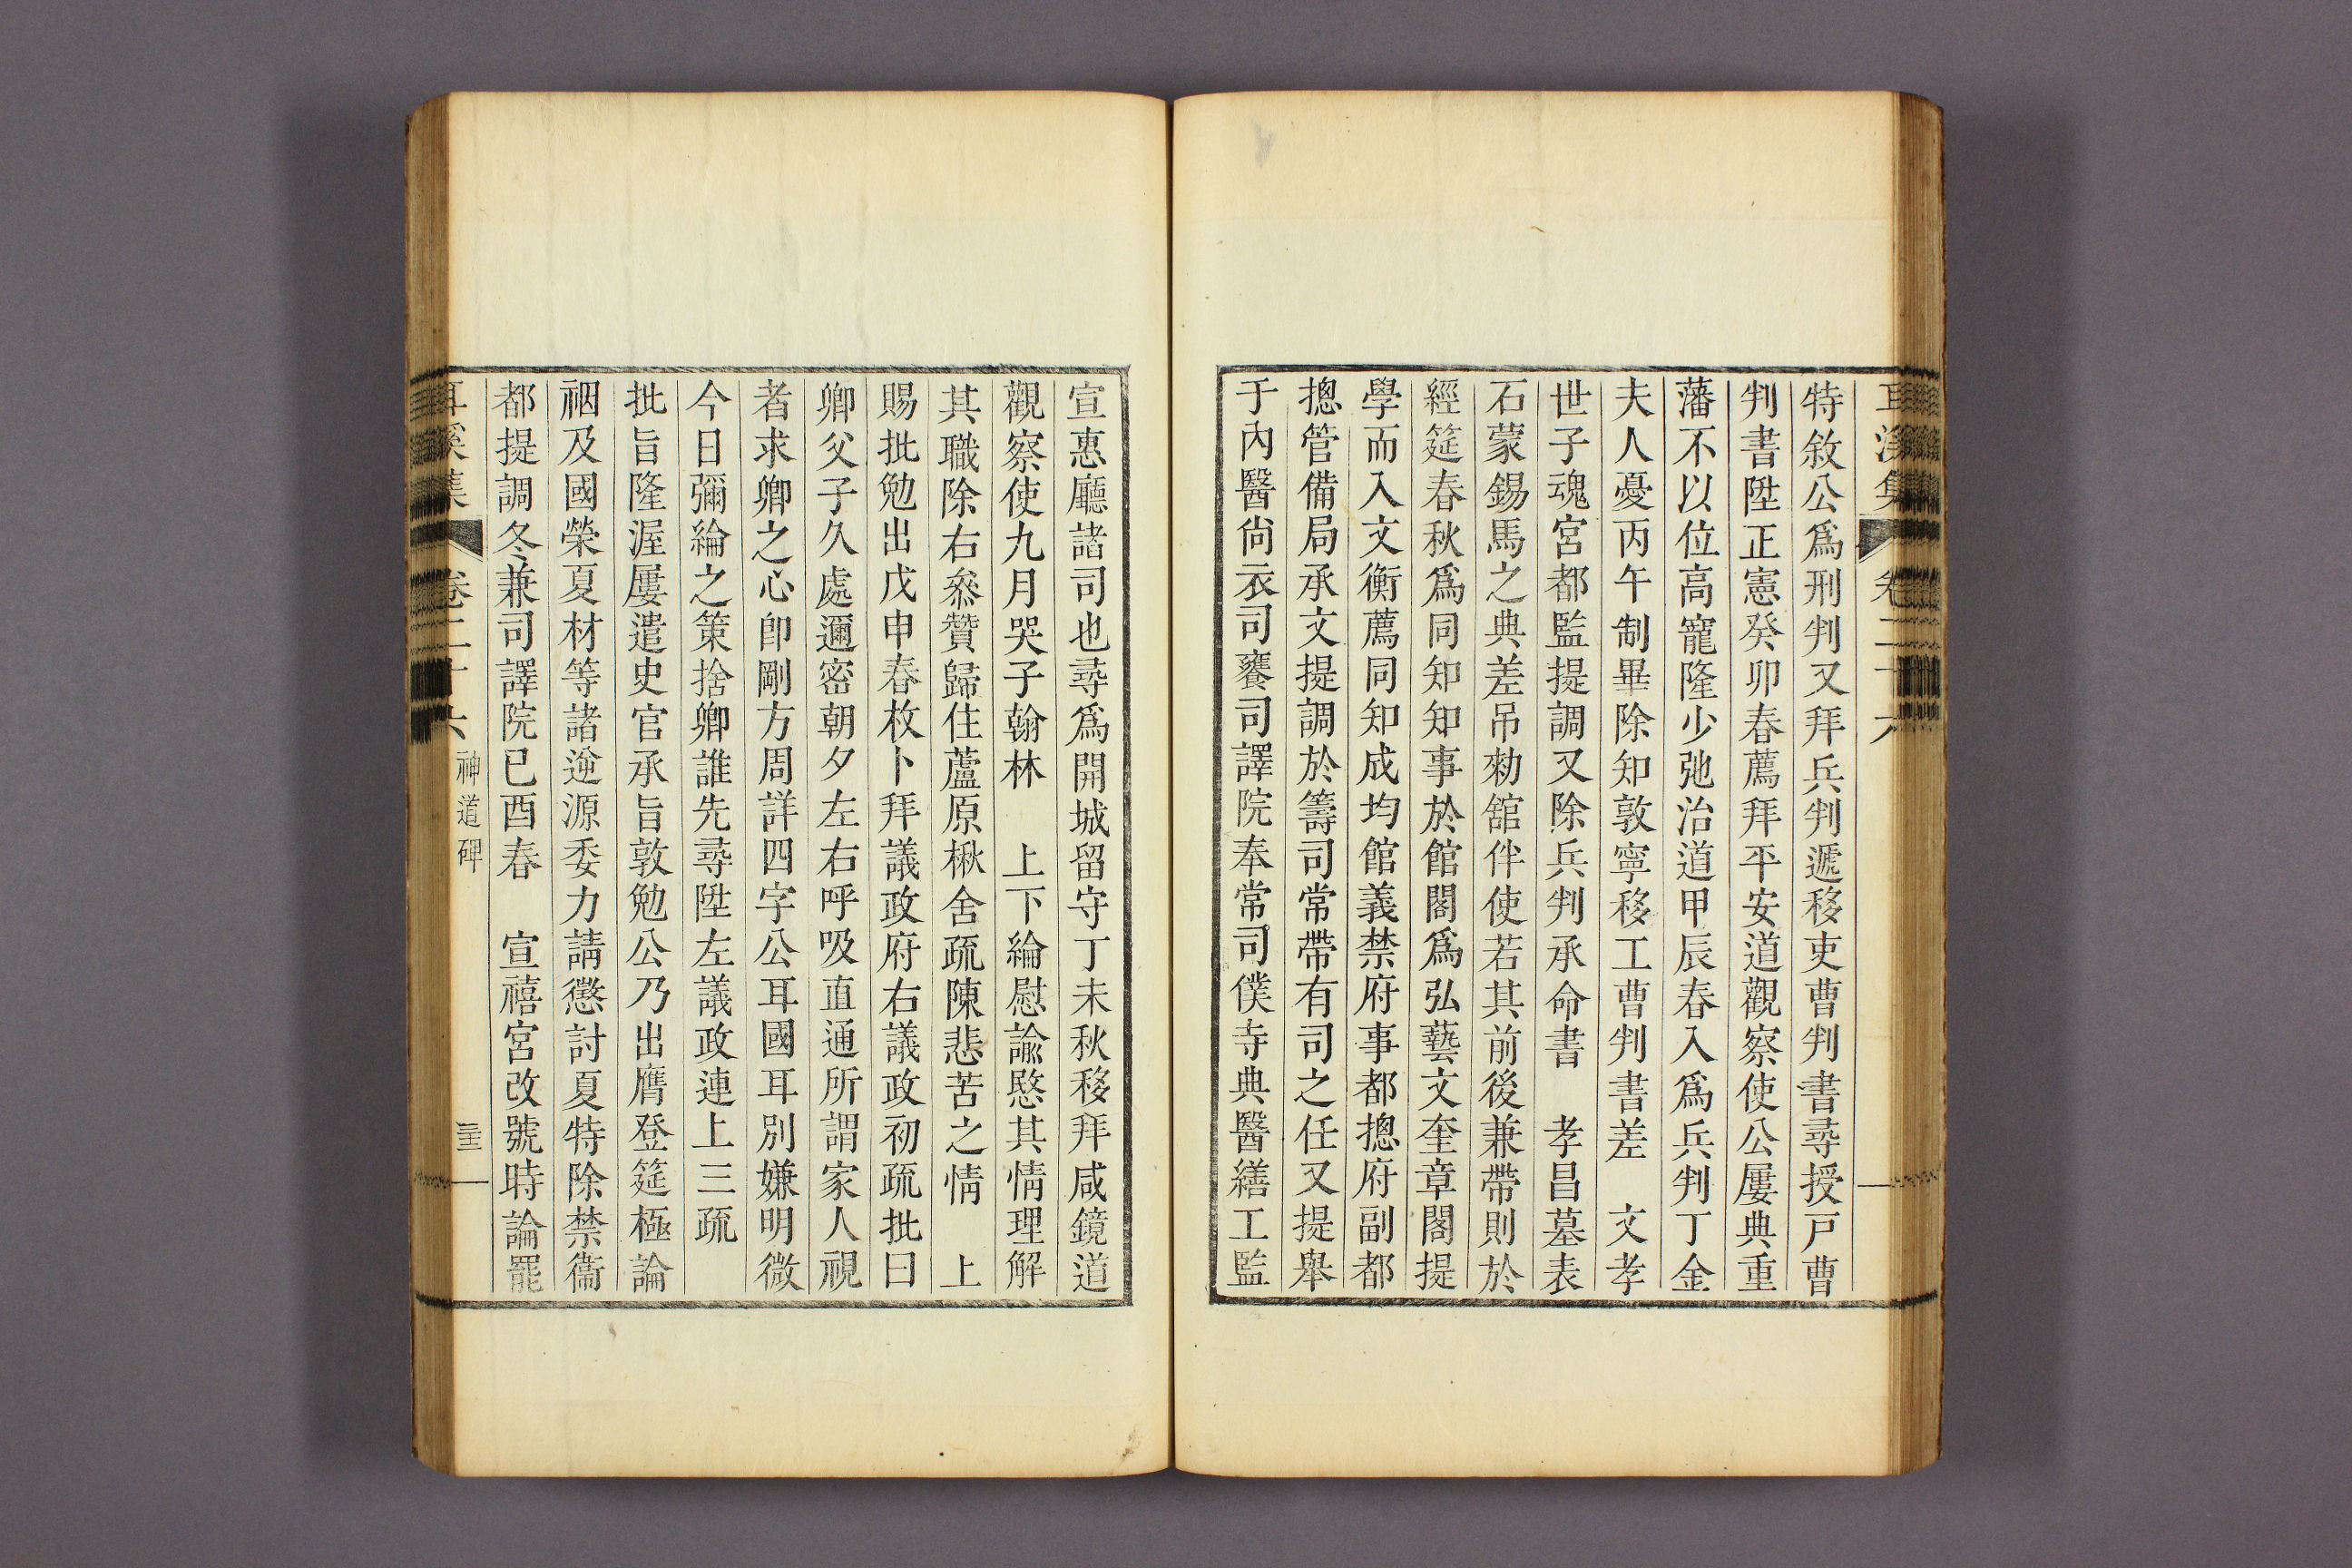 耳溪集 卷二十六
特敘公爲刑判又拜兵判遞移吏曹判書尋授戶曹
判書陞正憲癸卯春薦拜平安道觀察使公屢典重
藩不以位高寵隆少弛治道甲辰春入爲兵判丁金
夫人憂丙午制畢除知敦寧移工曹判書差 文孝
世子魂宮都監提調又除兵判承命書 孝昌墓表
石蒙錫馬之典差吊勑舘伴使若其前後兼帶則於
經筵春秋爲同知知事於館閣爲弘藝文奎章閣提
學而入文衡薦同知成均館義禁府事都摠府副都
摠管備局承文提調於籌司常帶有司之任又提舉
于內醫尙衣司饔司譯院奉常司僕寺典醫繕工監
宣惠廳諸司也尋爲開城留守丁未秋移拜咸鏡道
觀察使九月哭子翰林 上下綸慰諭愍其情理解
其職除右叅贊歸住蘆原楸舍疏陳悲苦之情 上
賜批勉出戊申春枚卜拜議政府右議政初疏批曰
卿父子久處邇密朝夕左右呼吸直通所謂家人視
者求卿之心卽剛方周詳四字公耳國耳別嫌明微
今日彌綸之策捨卿誰先尋陞左議政連上三疏
批旨隆渥屢遣史官承旨敦勉公乃出膺登筵極論
裀及國榮夏材等諸逆源委力請懲討夏特除禁衞
都提調冬兼司譯院已酉春 宣禧宮改號時論罷
耳溪集 卷二十六 神道碑